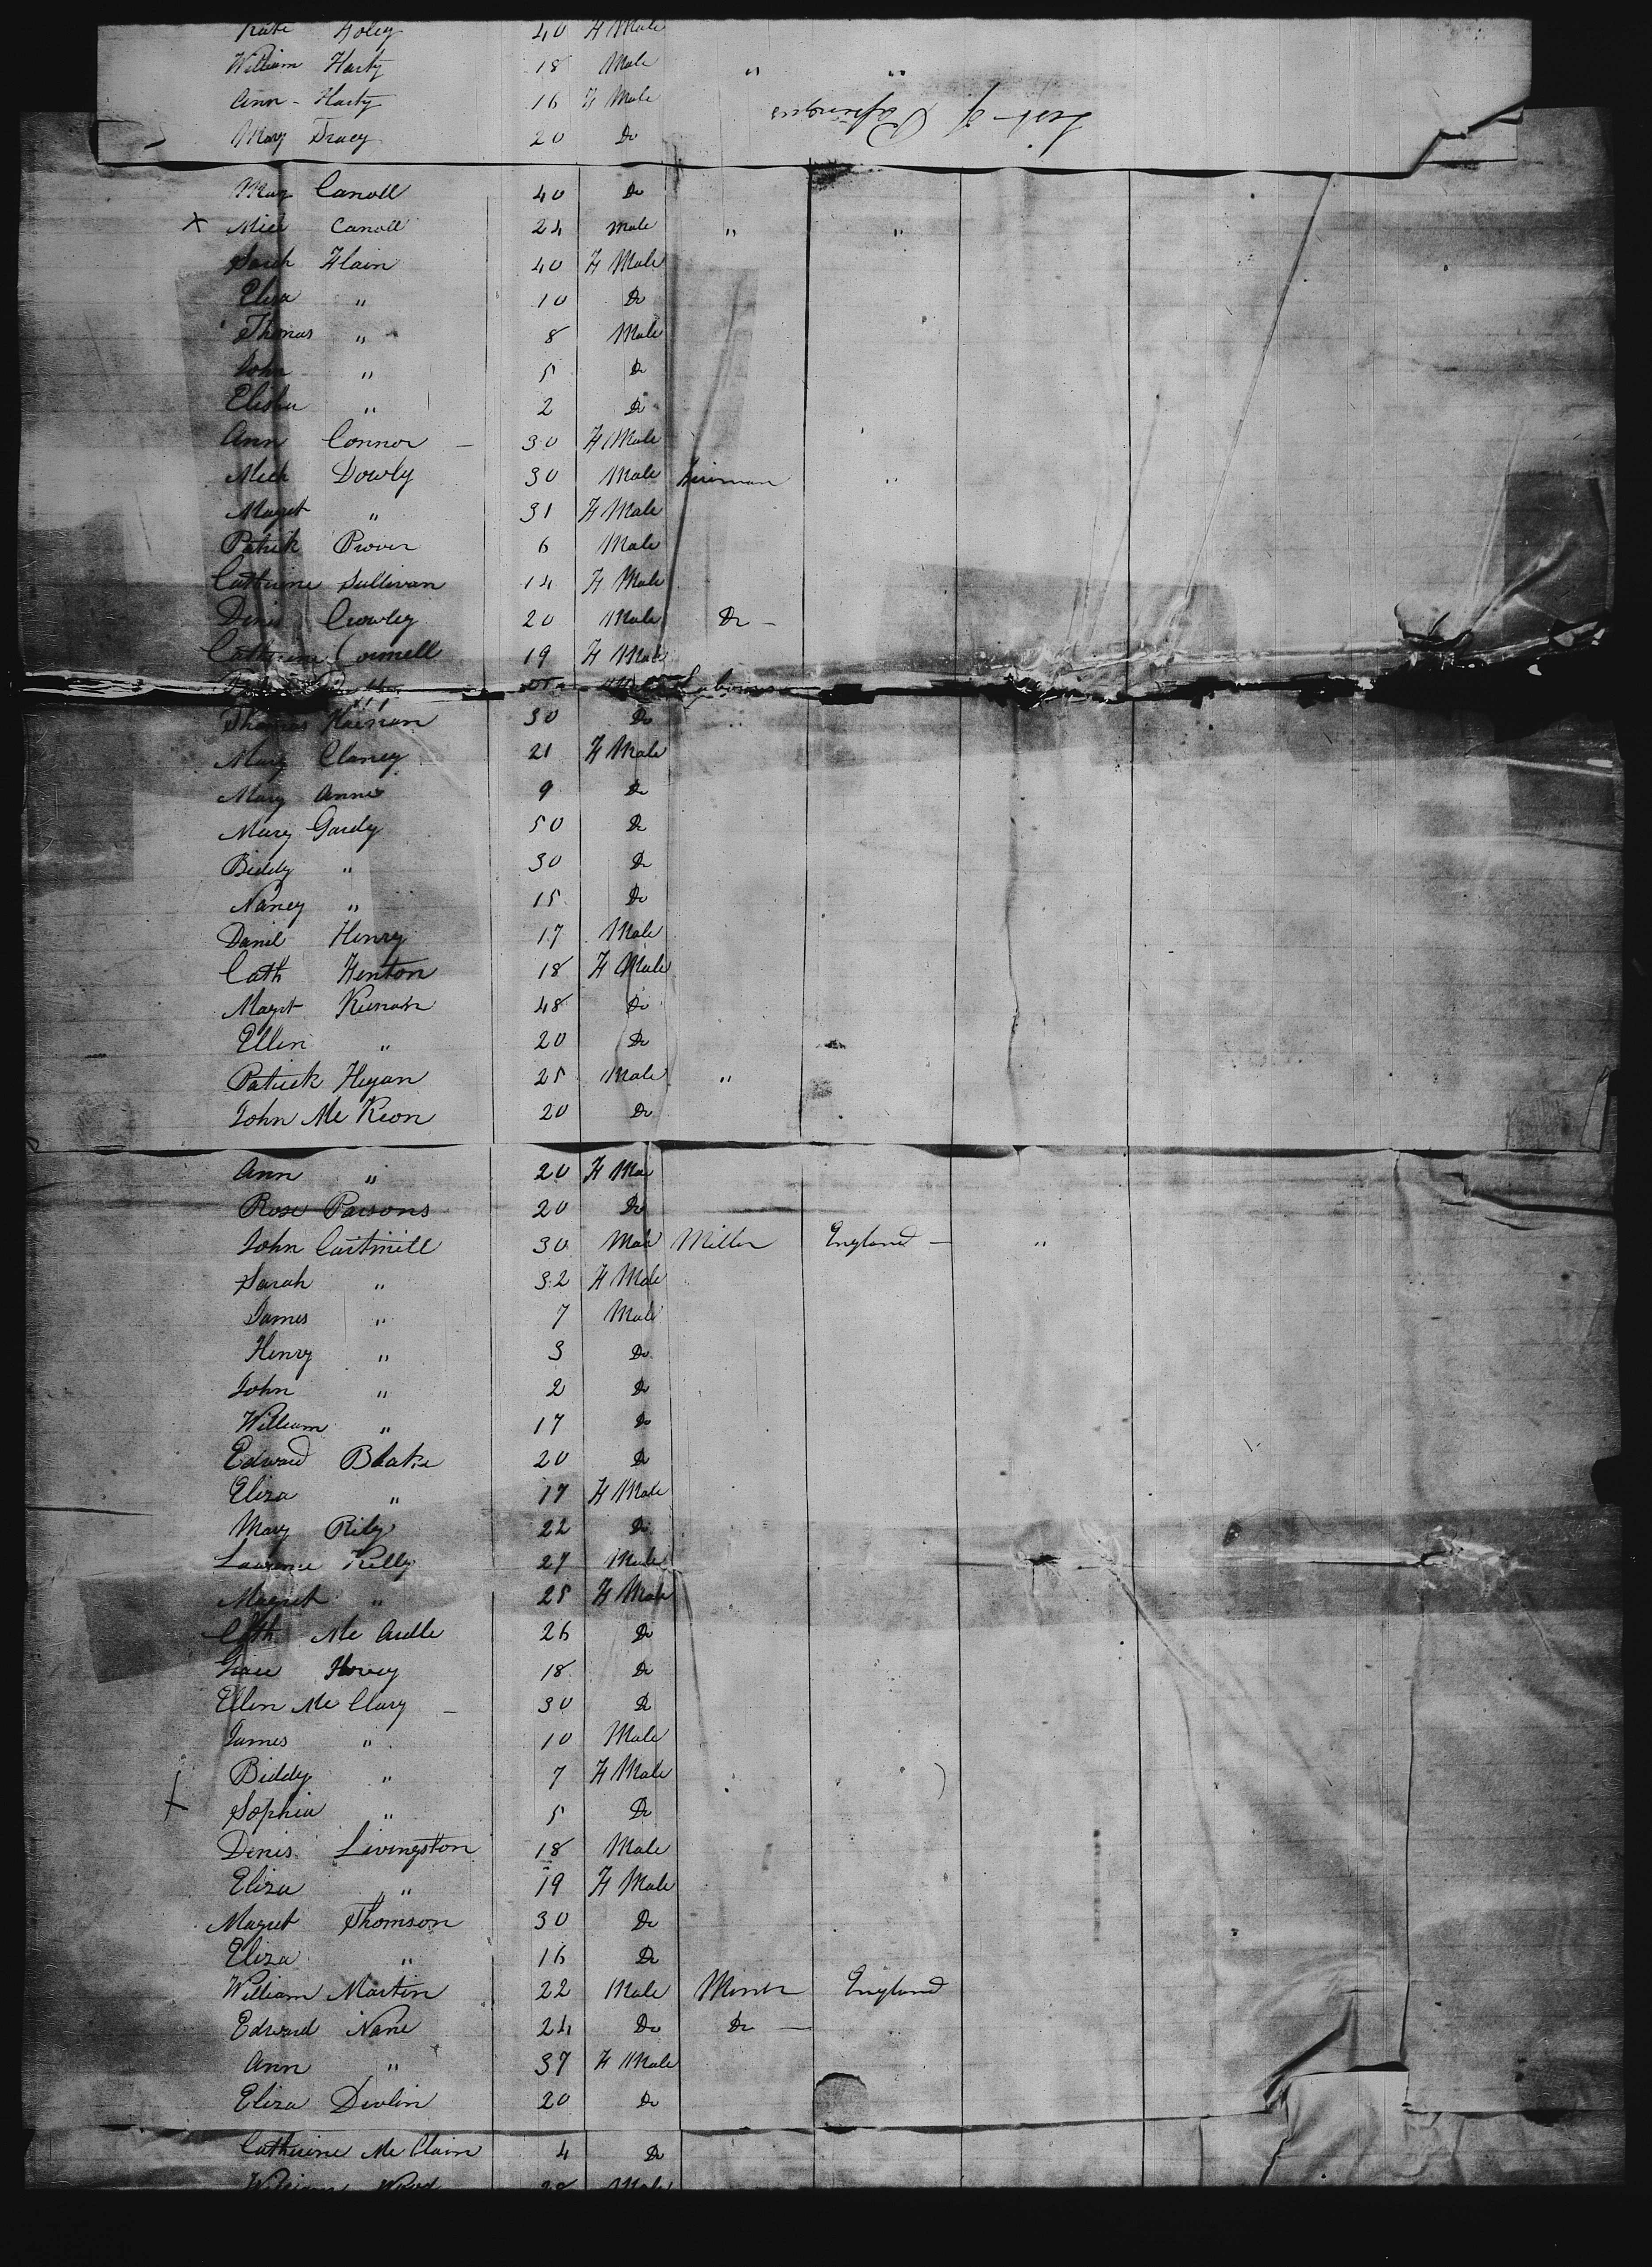 Kate Foley 40 F Male
William Harty 18 Male " "
Ann - Harty 16 F Male
List of Passengers
Mary Tracy 20 Do
Mary Carroll 40 Do
x Mich Carroll 24 Male " "
Sarah Flain 40 F Male
Eliza " 10 Do
Thomas " 8 Male
John " 5 Do
Elisha " 2 Do
Ann Connor - 30 F Male
Mich Dowly 30 Male "
Magret " 31 F Male
Patrik 6 Male
Catherine Sullivan 14 F Male
Denis Crowley 20 Male Do -
Catherine Cornell 19 F Male
Laborers
Thomas 30 Do
Mary Clancy 21 F Male
Mary Anne 9 Do
Mary Gardy 50 Do
Biddy " 30 Do
Nancy " 15 Do
Daniel Henry 17 Male
Cath Fenton 18 F Male
Magret Keenan 48 Do
Ellen " 20 Do
Patrick Hegan 25 Male "
John Mc Keon 20 Do
Ann " 20 F Male
Rose Parsons 20 Do
John Cartmill 30 Male Miller England - "
Sarah " 32 F Male
James " 7 Male
Henry " 3 Do
John " 2 Do
William " 17 Do
Edward Blake 20 Do
Eliza " 17 F Male
Mary Rily 22 Do
Lawrence Kelly 27 Male
Magret " 25 F Male
Cath Mc Ardle 26 Do
Grace 18 Do
Ellen Mc Clary - 30 Do
James " 10 Male
Biddy " 7 F Male
x Sophia " 5 Do
Denis Livingston 18 Male
Eliza " 19 F Male
Magret Thomson 30 Do
Eliza " 16 Do
William Martin 22 Male Miner England
Edward Nane 24 Do Do -
Ann " 37 F Male
Eliza Devlin 20 Do
Catherine Mc Clain 4 Do
William Wood 28 Male